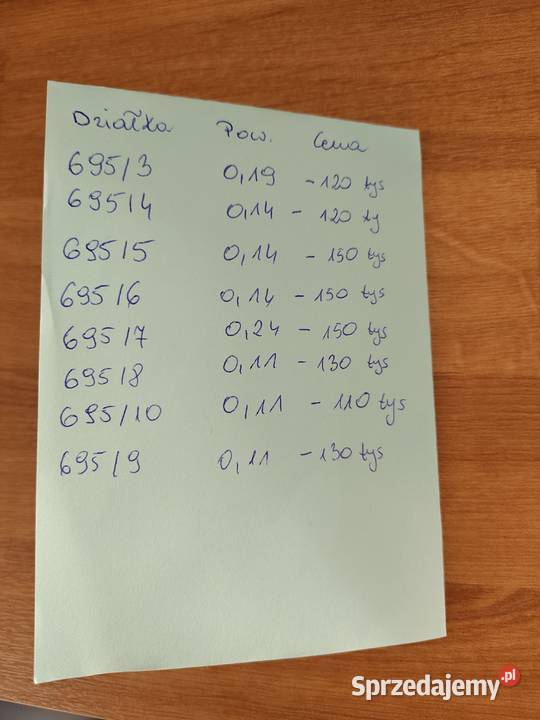 Działka Pow. Cena
695/3 0,19 - 120 tys
695/4 0,14 - 120 ty
695/5 0,14 - 150 tys
695/6 0,14 - 150 tys
695/7 0,24 - 150 tys
695/8 0,11 - 130 tys
695/10 0,11 - 110 tys
695/9 0,11 - 130 tys
Sprzedajemy.pl